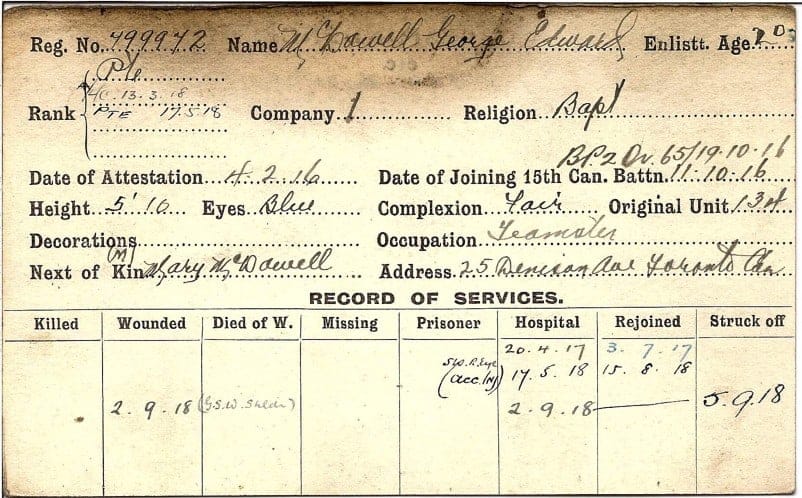 Reg. No. 799972 Name McDowell George Edward Enlistt. Age 20
Pte
Rank L/C. 13.3.18
PTE 17.5.18 Company 1 Religion Bapt
BP2 Or. 65/19.10.16
Date of Attestation 4.2.16 Date of Joining 15th Can. Battn. 11.10.16
Height 5'10 Eyes Blue Complexion Fair Original Unit 134
Decorations Occupation Teamster
Next of Kin (M) Mary McDowell Address 25 Denison Ave Toronto Can
RECORD OF SERVICES.
Killed Wounded Died of W. Missing Prisoner Hospital Rejoined Struck off
20.4.17 3.7.17
R. Eye
(acc. Inj) 17.5.18 15.8.18
2.9.18 (G.S.W. Shldr) 2.9.18 5.9.18